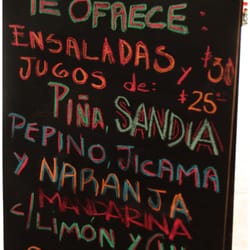 TE OFRECE:
ENSALADAS y $30
JUGOS de: $25
PIÑA, SANDIA
PEPINO, JICAMA
Y NARANJA
MANDARINA
C/LIMON Y